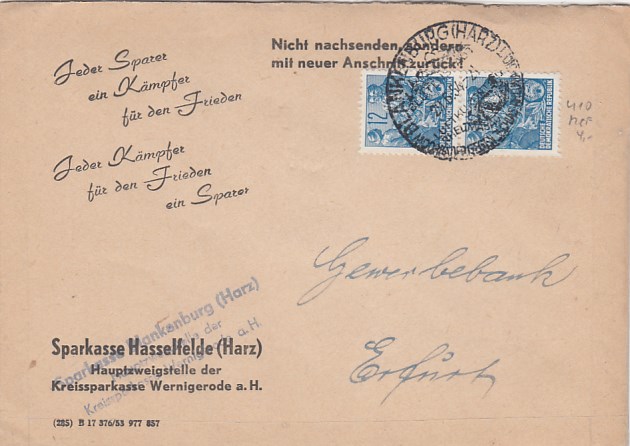 Nicht nachsenden, sondern
mit neuer Anschrift zurück!
Jeder Sparer
ein Kämpfer
für den Frieden
Jeder Kämpfer
für den Frieden
ein Sparer
BLANKENBURG (HARZ)
12
DEUTSCHE
DEMOKRATISCHE REPUBLIK
410
Gewerbebank
Erfurt
Sparkasse Blankenburg (Harz)
Hauptzweigstelle der
Kreissparkasse Wernigerode a. H.
Sparkasse Hasselfelde (Harz)
Hauptzweigstelle der
Kreissparkasse Wernigerode a. H.
(285) B 17 376/53 977 857